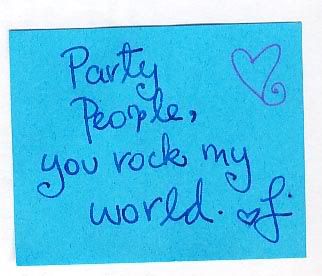 Party
People,
you rock my
world. ♥ J.